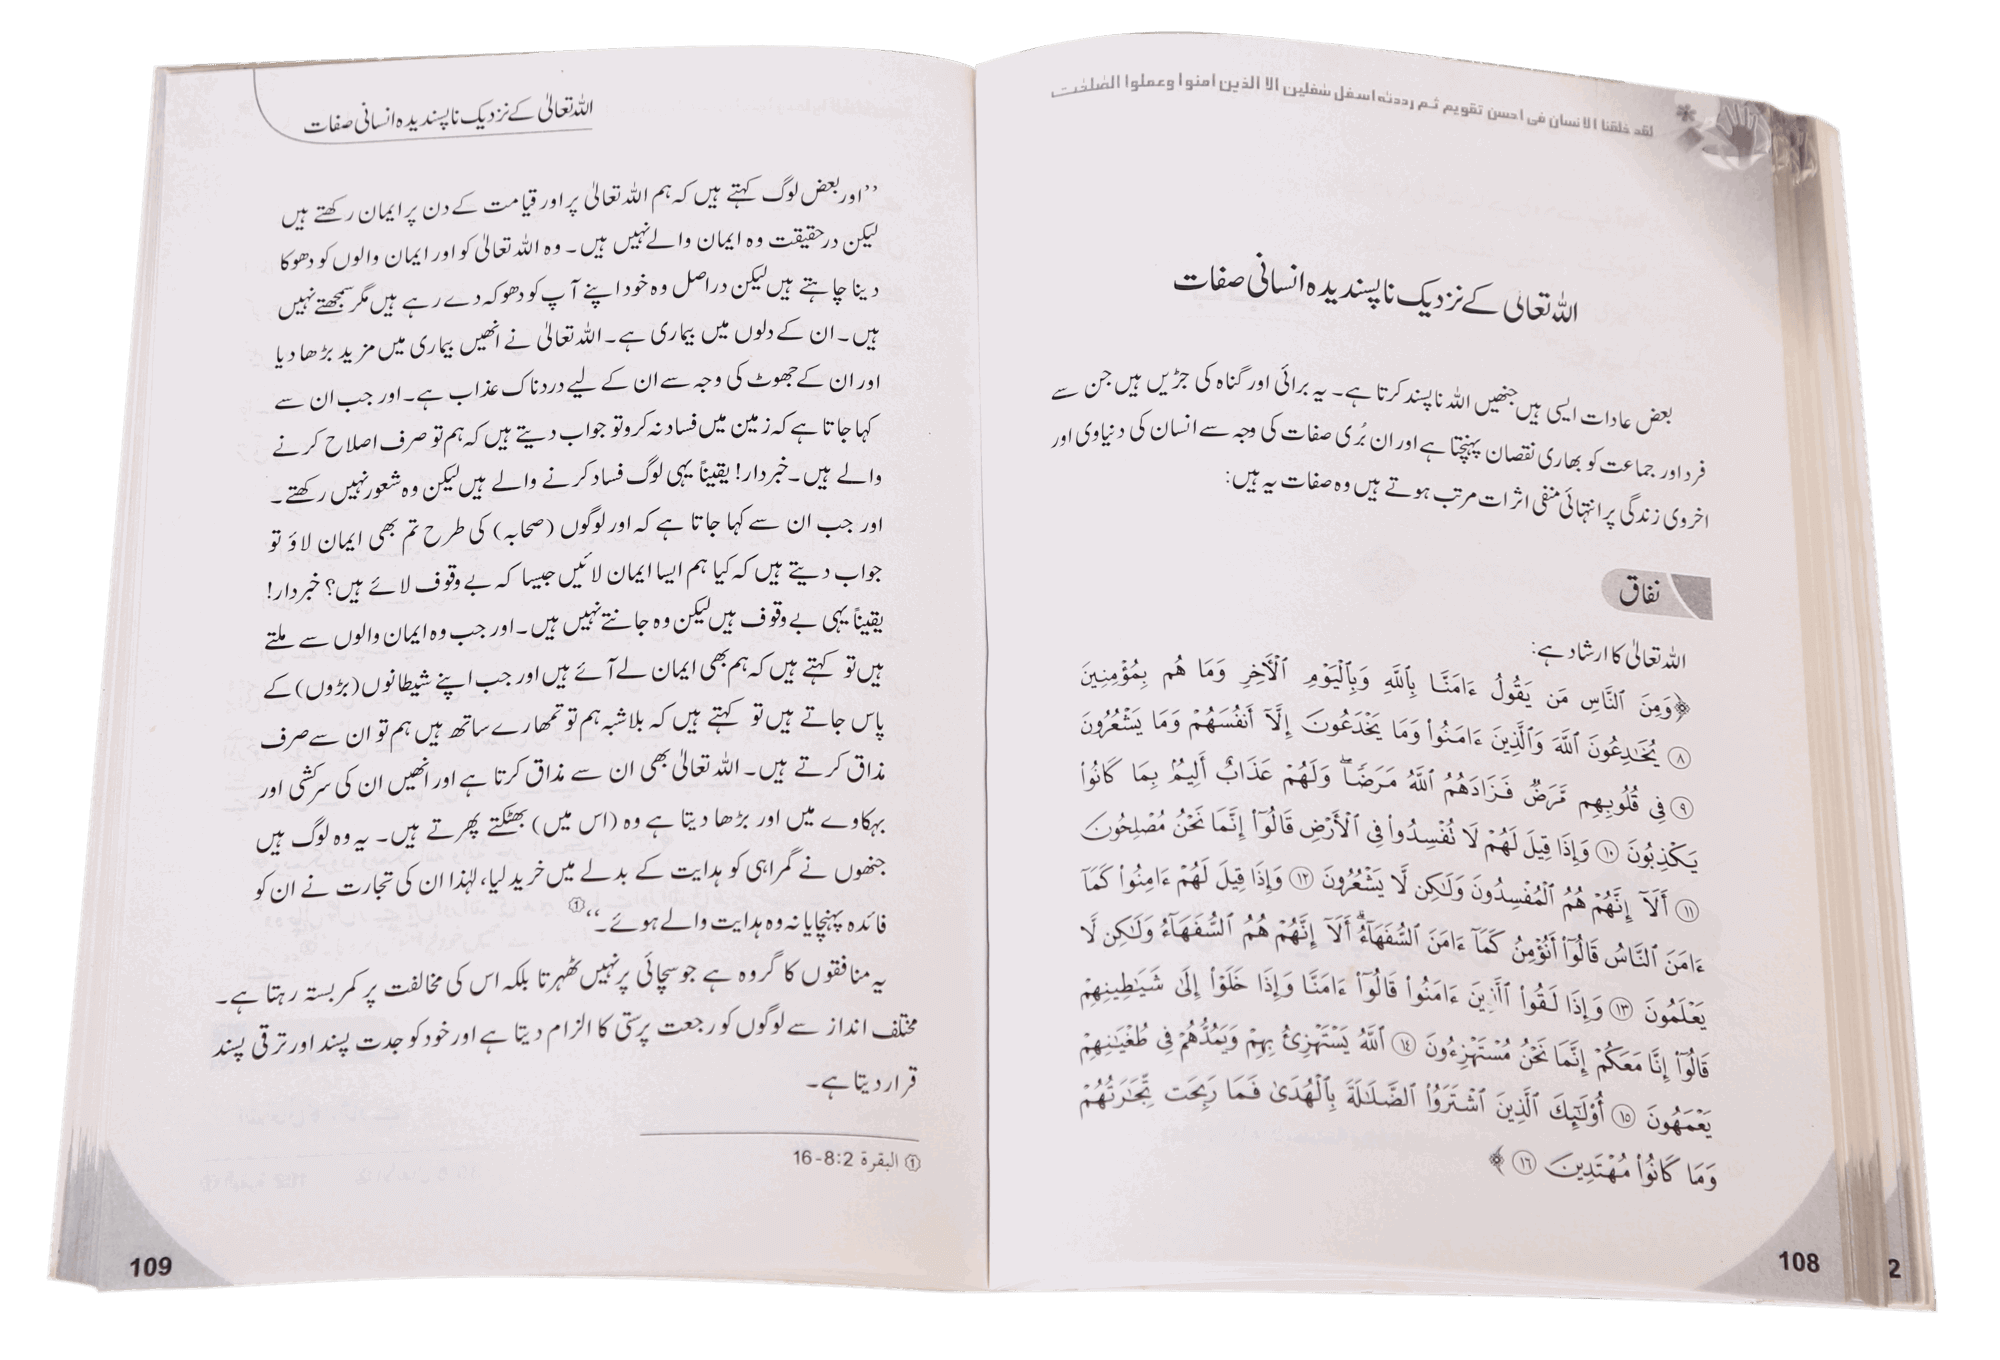 لقد خلقنا الانسان في احسن تقويم ثم رددنه اسفل سفلين الا الذين امنوا وعملوا الصلحت
اللہ تعالیٰ کے نزدیک ناپسندیدہ انسانی صفات
بعض عادات ایسی ہیں جنھیں اللہ ناپسند کرتا ہے۔ یہ برائی اور گناہ کی جڑیں ہیں جن سے
فرد اور جماعت کو بھاری نقصان پہنچتا ہے اور ان بُری صفات کی وجہ سے انسان کی دنیاوی اور
اخروی زندگی پر انتہائی منفی اثرات مرتب ہوتے ہیں وہ صفات یہ ہیں:
نفاق
اللہ تعالیٰ کا ارشاد ہے:
﴿وَمِنَ ٱلنَّاسِ مَن يَقُولُ ءَامَنَّا بِٱللَّهِ وَبِٱلْيَوْمِ ٱلْأَخِرِ وَمَا هُم بِمُؤْمِنِينَ
٨ يُخَٰدِعُونَ ٱللَّهَ وَٱلَّذِينَ ءَامَنُوا۟ وَمَا يَخْدَعُونَ إِلَّآ أَنفُسَهُمْ وَمَا يَشْعُرُونَ
٩ فِى قُلُوبِهِم مَّرَضٌ فَزَادَهُمُ ٱللَّهُ مَرَضًا ۖ وَلَهُمْ عَذَابٌ أَلِيمٌۢ بِمَا كَانُوا۟
يَكْذِبُونَ ١٠ وَإِذَا قِيلَ لَهُمْ لَا تُفْسِدُوا۟ فِى ٱلْأَرْضِ قَالُوٓا۟ إِنَّمَا نَحْنُ مُصْلِحُونَ
١١ أَلَآ إِنَّهُمْ هُمُ ٱلْمُفْسِدُونَ وَلَٰكِن لَّا يَشْعُرُونَ ١٢ وَإِذَا قِيلَ لَهُمْ ءَامِنُوا۟ كَمَآ
ءَامَنَ ٱلنَّاسُ قَالُوٓا۟ أَنُؤْمِنُ كَمَآ ءَامَنَ ٱلسُّفَهَآءُ ۗ أَلَآ إِنَّهُمْ هُمُ ٱلسُّفَهَآءُ وَلَٰكِن لَّا
يَعْلَمُونَ ١٣ وَإِذَا لَقُوا۟ ٱلَّذِينَ ءَامَنُوا۟ قَالُوٓا۟ ءَامَنَّا وَإِذَا خَلَوْا۟ إِلَىٰ شَيَٰطِينِهِمْ
قَالُوٓا۟ إِنَّا مَعَكُمْ إِنَّمَا نَحْنُ مُسْتَهْزِءُونَ ١٤ ٱللَّهُ يَسْتَهْزِئُ بِهِمْ وَيَمُدُّهُمْ فِى طُغْيَٰنِهِمْ
يَعْمَهُونَ ١٥ أُو۟لَٰٓئِكَ ٱلَّذِينَ ٱشْتَرَوُا۟ ٱلضَّلَٰلَةَ بِٱلْهُدَىٰ فَمَا رَبِحَت تِّجَٰرَتُهُمْ
وَمَا كَانُوا۟ مُهْتَدِينَ ١٦﴾
108
2
اللہ تعالیٰ کے نزدیک ناپسندیدہ انسانی صفات
’’اور بعض لوگ کہتے ہیں کہ ہم اللہ تعالیٰ پر اور قیامت کے دن پر ایمان رکھتے ہیں
لیکن درحقیقت وہ ایمان والے نہیں ہیں۔ وہ اللہ تعالیٰ کو اور ایمان والوں کو دھوکا
دینا چاہتے ہیں لیکن دراصل وہ خود اپنے آپ کو دھوکہ دے رہے ہیں مگر سمجھتے نہیں
ہیں۔ ان کے دلوں میں بیماری ہے۔ اللہ تعالیٰ نے انھیں بیماری میں مزید بڑھا دیا
اور ان کے جھوٹ کی وجہ سے ان کے لیے دردناک عذاب ہے۔ اور جب ان سے
کہا جاتا ہے کہ زمین میں فساد نہ کرو تو جواب دیتے ہیں کہ ہم تو صرف اصلاح کرنے
والے ہیں۔ خبردار! یقیناً یہی لوگ فساد کرنے والے ہیں لیکن وہ شعور نہیں رکھتے۔
اور جب ان سے کہا جاتا ہے کہ اور لوگوں (صحابہ) کی طرح تم بھی ایمان لاؤ تو
جواب دیتے ہیں کہ کیا ہم ایسا ایمان لائیں جیسا کہ بے وقوف لائے ہیں؟ خبردار!
یقیناً یہی بے وقوف ہیں لیکن وہ جانتے نہیں ہیں۔ اور جب وہ ایمان والوں سے ملتے
ہیں تو کہتے ہیں کہ ہم بھی ایمان لے آئے ہیں اور جب اپنے شیطانوں (بڑوں) کے
پاس جاتے ہیں تو کہتے ہیں کہ بلاشبہ ہم تو تمھارے ساتھ ہیں ہم تو ان سے صرف
مذاق کرتے ہیں۔ اللہ تعالیٰ بھی ان سے مذاق کرتا ہے اور انھیں ان کی سرکشی اور
بہکاوے میں اور بڑھا دیتا ہے وہ (اس میں) بھٹکتے پھرتے ہیں۔ یہ وہ لوگ ہیں
جنھوں نے گمراہی کو ہدایت کے بدلے میں خرید لیا، لہٰذا ان کی تجارت نے ان کو
فائدہ پہنچایا نہ وہ ہدایت والے ہوئے۔‘‘①
یہ منافقوں کا گروہ ہے جو سچائی پر نہیں ٹھہرتا بلکہ اس کی مخالفت پر کمربستہ رہتا ہے۔
مختلف انداز سے لوگوں کو رجعت پرستی کا الزام دیتا ہے اور خود کو جدت پسند اور ترقی پسند
قرار دیتا ہے۔
① البقرة 2:8-16
109